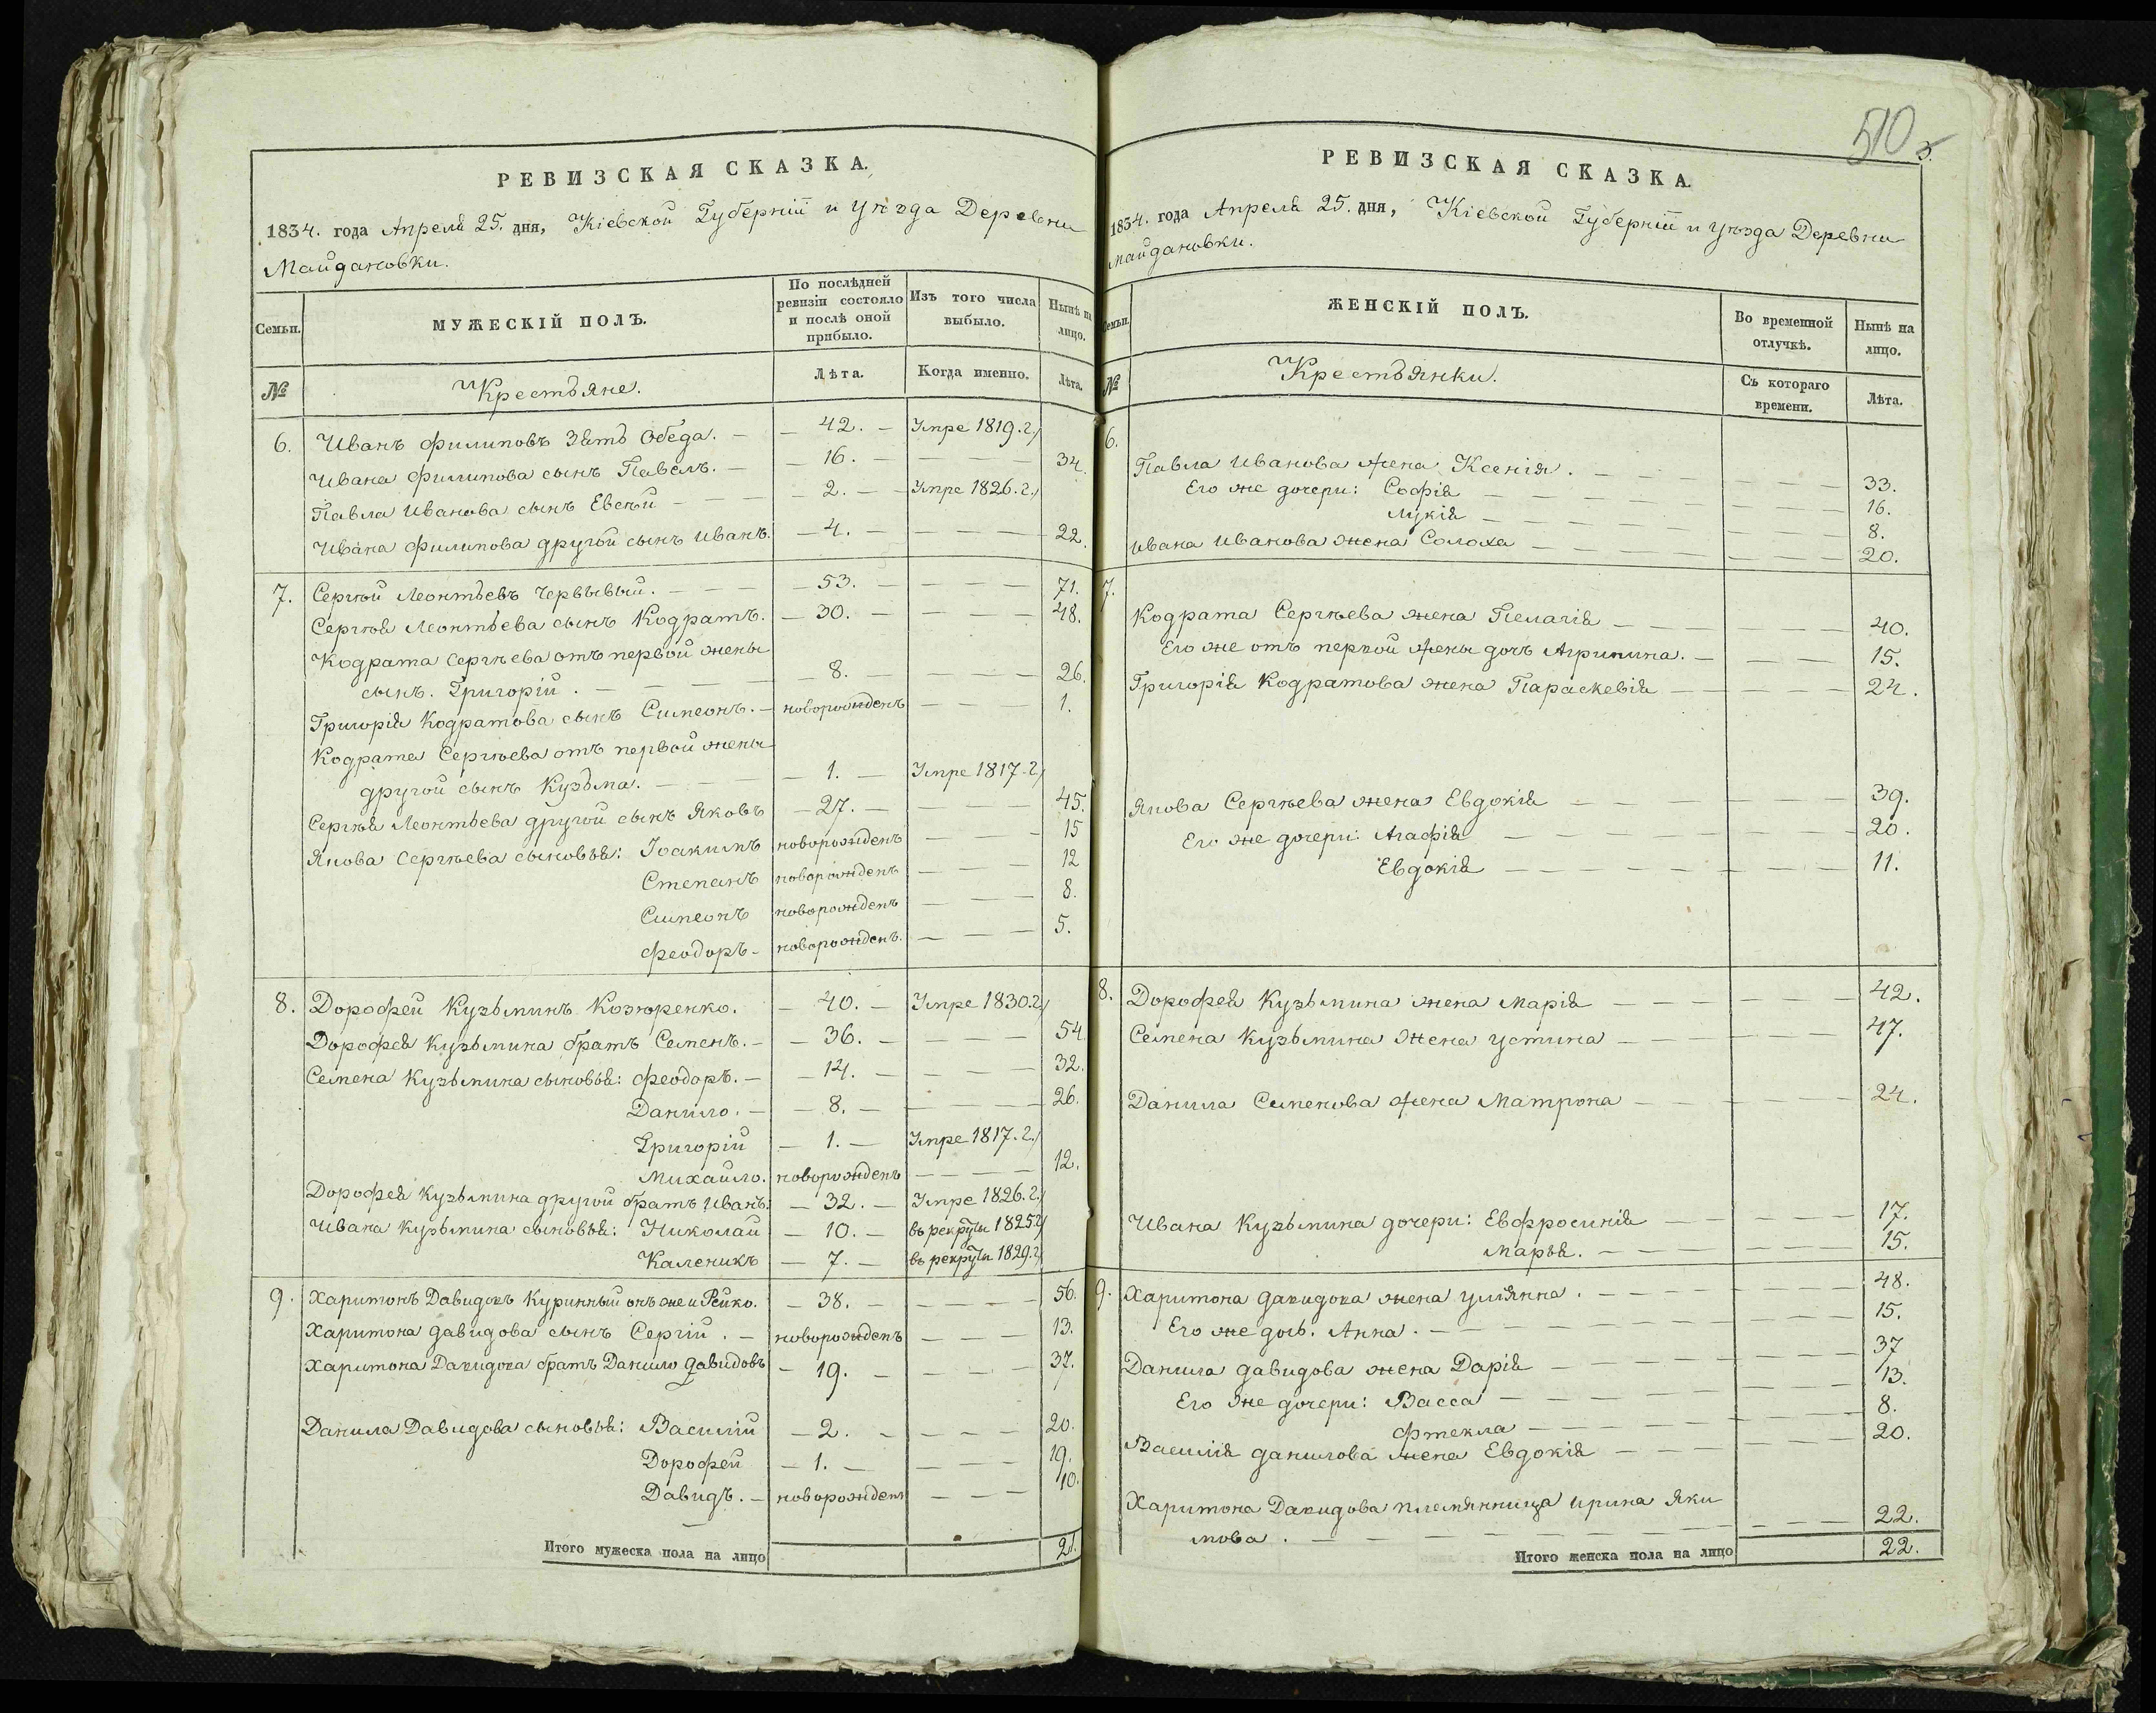 510
5.
РЕВИЗСКАЯ СКАЗКА.
1834. года Апреля 25. дня, Кіевской Губерніи и уѣзда Деревни
Майдановки.
Семьи.
МУЖЕСКІЙ ПОЛЪ.
По послѣдней ревизіи состояло и послѣ оной прибыло.
Изъ того числа выбыло.
Нынѣ на лицо.
№
Крестьяне.
Лѣта.
Когда именно.
Лѣта.
6. Иванъ Филиповъ Зять Обеда. — 42. — Умре 1819. г.
Ивана Филипова сынъ Павелъ. — 16. — 34.
Павла Иванова сынъ Евсѣй — 2. — Умре 1826. г.
Ивана Филипова другой сынъ Иванъ. — 4. — 22.
7. Сергѣй Леонтьевъ Червывый. — 53. — 71.
Сергѣя Леонтьева сынъ Кодратъ. — 30. — 48.
Кодрата Сергѣева отъ первой жены
сынъ. Григорій. — 8. — 26.
Григорія Кодратова сынъ Симеонъ. — новорожденъ — 1.
Кодрата Сергѣева отъ первой жены
другой сынъ Кузьма. — 1. — Умре 1817. г.
Сергѣя Леонтьева другой сынъ Яковъ — 27. — 45.
Якова Сергѣева сыновья: Іоакимъ новорожденъ — 15
Степанъ новорожденъ — 12
Симеонъ новорожденъ — 8.
Феодоръ — новорожденъ. — 5.
8. Дорофей Кузьминъ Козюренко. — 40. — Умре 1830. г.
Дорофея Кузьмина братъ Семенъ. — 36. — 54.
Семена Кузьмина сыновья: Феодоръ. — 14. — 32.
Данило. — 8. — 26.
Григорій — 1. — Умре 1817. г.
Михайло. новорожденъ — 12.
Дорофея Кузьмина другой братъ Иванъ. — 32. — Умре 1826. г.
Ивана Кузьмина сыновья: Николай — 10. — въ рекруты 1825 г.
Каленикъ — 7. — въ рекруты 1829. г.
9. Харитонъ Давидовъ Куринный онъ же и Рейко. — 38. — 56.
Харитона Давидова сынъ Сергій. — новорожденъ — 13.
Харитона Давидова братъ Данило Давидовъ — 19. — 37.
Данила Давидова сыновья: Василій — 2. — 20.
Дорофей — 1. — 19.
Давидъ. — новорожденъ — 10.
Итого мужеска пола на лицо 21.
РЕВИЗСКАЯ СКАЗКА.
1834. года Апреля 25. дня, Кіевской Губерніи и уѣзда Деревни
Майдановки.
Семьи.
ЖЕНСКІЙ ПОЛЪ.
Во временной отлучкѣ.
Нынѣ на лицо.
№
Крестьянки.
Съ котораго времени.
Лѣта.
6.
Павла Иванова жена Ксенія. — 33.
Его же дочери: Софія — 16.
Лукія — 8.
Ивана Иванова жена Солоха — 20.
7.
Кодрата Сергѣева жена Пелагія — 40.
Его же отъ первой жены дочь Агрипина. — 15.
Григорія Кодратова жена Параскевія — 24.
Якова Сергѣева жена Евдокія — 39.
Его же дочери: Агафія — 20.
Евдокія — 11.
8. Дорофея Кузьмина жена Марія — 42.
Семена Кузьмина жена Устина — 47.
Данила Семенова жена Матрона — 24.
Ивана Кузьмина дочери: Евфросинія — 17.
Марья. — 15.
9. Харитона Давидова жена Уліянна. — 48.
Его же дочь. Анна. — 15.
Данила Давидова жена Дарія — 37
Его же дочери: Васса — 13.
Фтекла — 8.
Василія Данилова жена Евдокія — 20.
Харитона Давидова племянница Ирина Яки
мова. — 22.
Итого женска пола на лицо 22.